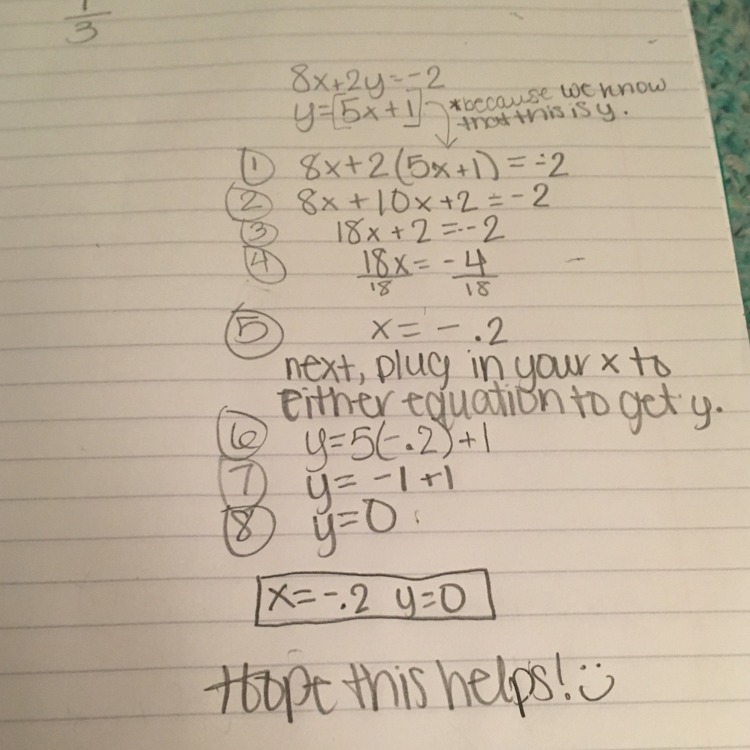 1
3
8x+2y=-2
y=[5x+1] *because we know
that this is y.
① 8x+2(5x+1)=-2
② 8x+10x+2=-2
③ 18x+2=-2
④ 18x=-4
18 18
⑤ x=-.2
next, plug in your x to
either equation to get y.
⑥ y=5(-.2)+1
⑦ y=-1+1
⑧ y=0
x=-.2 y=0
Hope this helps! :)